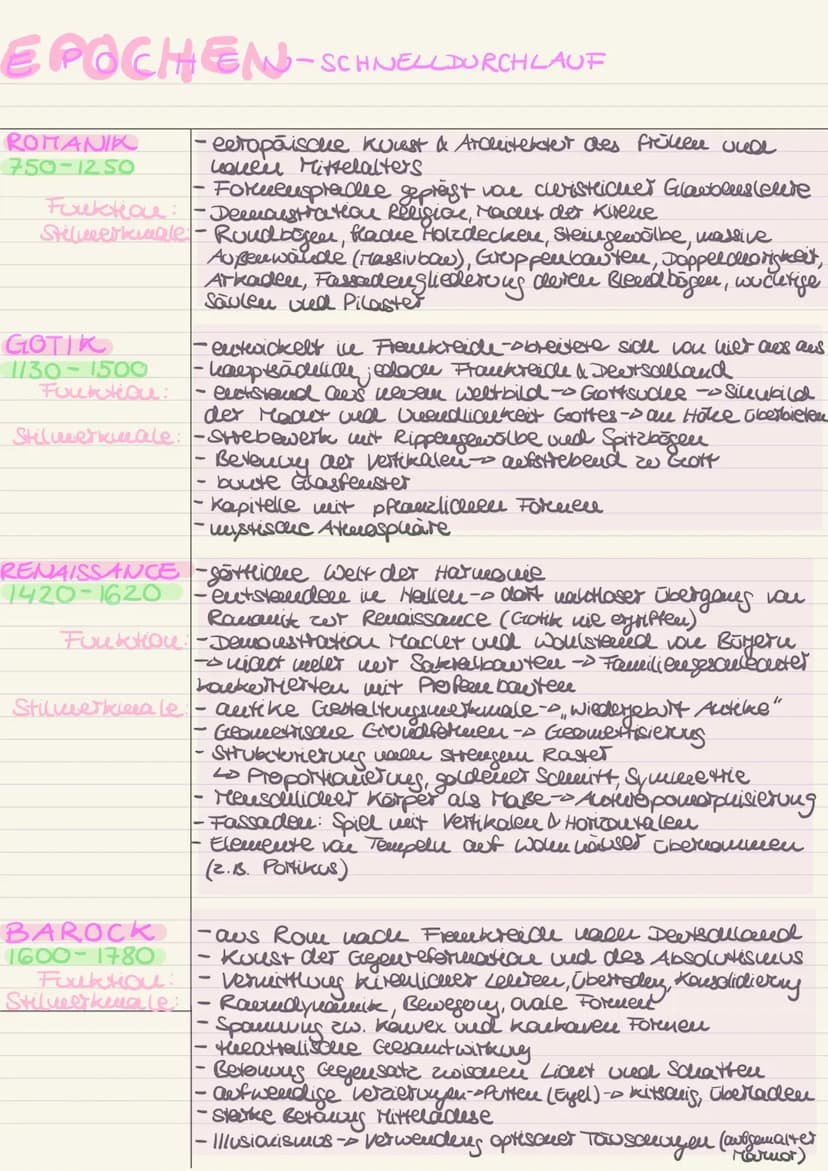 EPOCHEN - SCHNELLDURCHLAUF
ROMANIK
750-1250
- europäische Kunst & Architektur des frühen und
hohen Mittelalters
- Formensprache geprägt von christlicher Glaubenslehre
Funktion: - Demonstration Religion, Macht der Kirche
Stilmerkmale: - Rundbögen, flache Holzdecken, Steingewölbe, massive
Außenwände (Massivbau), Gruppenbauten, Doppelchörigkeit,
Arkaden, Fassadengliederung durch Blendbögen, wuchtige
Säulen und Pilaster
GOTIK
1130-1500
- entwickelt in Frankreich -> breitete sich von hier aus aus
- hauptsächlich jedoch Frankreich & Deutschland
Funktion: - entstand aus neuem Weltbild -> Gottsuche -> Sinnbild
der Macht und Unendlichkeit Gottes -> an Höhe überbieten
Stilmerkmale: - Strebewerk mit Rippengewölbe und Spitzbögen
- Betonung der Vertikalen -> aufstrebend zu Gott
- bunte Glasfenster
- Kapitelle mit pflanzlichen Formen
- mystische Atmosphäre
RENAISSANCE
1420-1620
- göttliche Welt der Harmonie
- entstanden in Italien -> dort nahtloser Übergang von
Romanik zur Renaissance (Gotik nie ergriffen)
Funktion: - Demonstration Macht und Wohlstand von Bürgern
-> nicht mehr nur Sakralbauten -> Familiengeschlechter
konkurrierten mit Profanbauten
Stilmerkmale: - antike Gestaltungsmerkmale -> „Wiedergeburt Antike"
- Geometrische Grundformen -> Geometrisierung
- Strukturierung nach strengem Raster
↳ Proportionierung, goldener Schnitt, Symmetrie
- Menschlicher Körper als Maße -> Anthropomorphisierung
- Fassaden: Spiel mit Vertikalen & Horizontalen
- Elemente von Tempeln auf Wohnhäuser übernommen
(z.B. Portikus)
BAROCK
1600-1780
- aus Rom nach Frankreich nach Deutschland
- Kunst der Gegenreformation und des Absolutismus
Funktion: - Vermittlung kirchlicher Lehren, Überreden, Konsolidierung
Stilmerkmale: - Raumdynamik, Bewegung, ovale Formen
- Spannung zw. konvex und konkaven Formen
- theatralische Gesamtwirkung
- Betonung Gegensatz zwischen Licht und Schatten
- aufwendige Verzierungen -> Putten (Engel) -> kitschig, überladen
- starke Betonung Mittelachse
- Illusionismus -> Verwendung optischer Täuschungen (aufgemalter
Marmor)